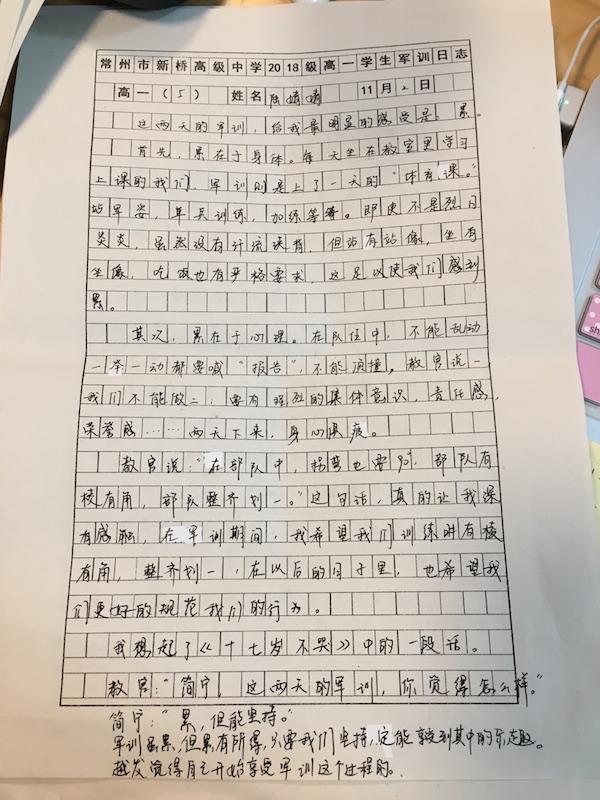 常州市新桥高级中学2018级高一学生军训日志
高一(5) 姓名 陆婧婧 11月2日
这两天的军训，给我最明显的感受是：累。
首先，累在于身体。每天坐在教室里学习
上课的我们，军训则是上了一天的“体育课。”
站军姿，单兵训练，加练等等。即使不是烈日
炎炎，虽然没有汗流浃背，但站有站像，坐有
坐像，吃饭也有严格要求，这足以使我们感到
累。
其次，累在于心理。在队伍中，不能乱动
一举一动都要喊“报告”，不能顶撞。教官说一
我们不能做二；要有强烈的集体意识，责任感，
荣誉感……两天下来，身心俱疲。
教官说：“在部队中，拐弯也要90°，部队有
棱有角，部队整齐划一。”这句话，真的让我深
有感触，在军训期间，我希望我们训练时有棱
有角，整齐划一，在以后的日子里，也希望我
们更好的规范我们的行为。
我想起了《十七岁不哭》中的一段话。
教官：“简宁，这两天的军训，你觉得怎么样。”
简宁：“累，但能坚持。”
军训虽累，但累有所得，只要我们坚持，定能享受到其中的乐趣。
越发觉得自己开始享受军训这个过程的。
sh